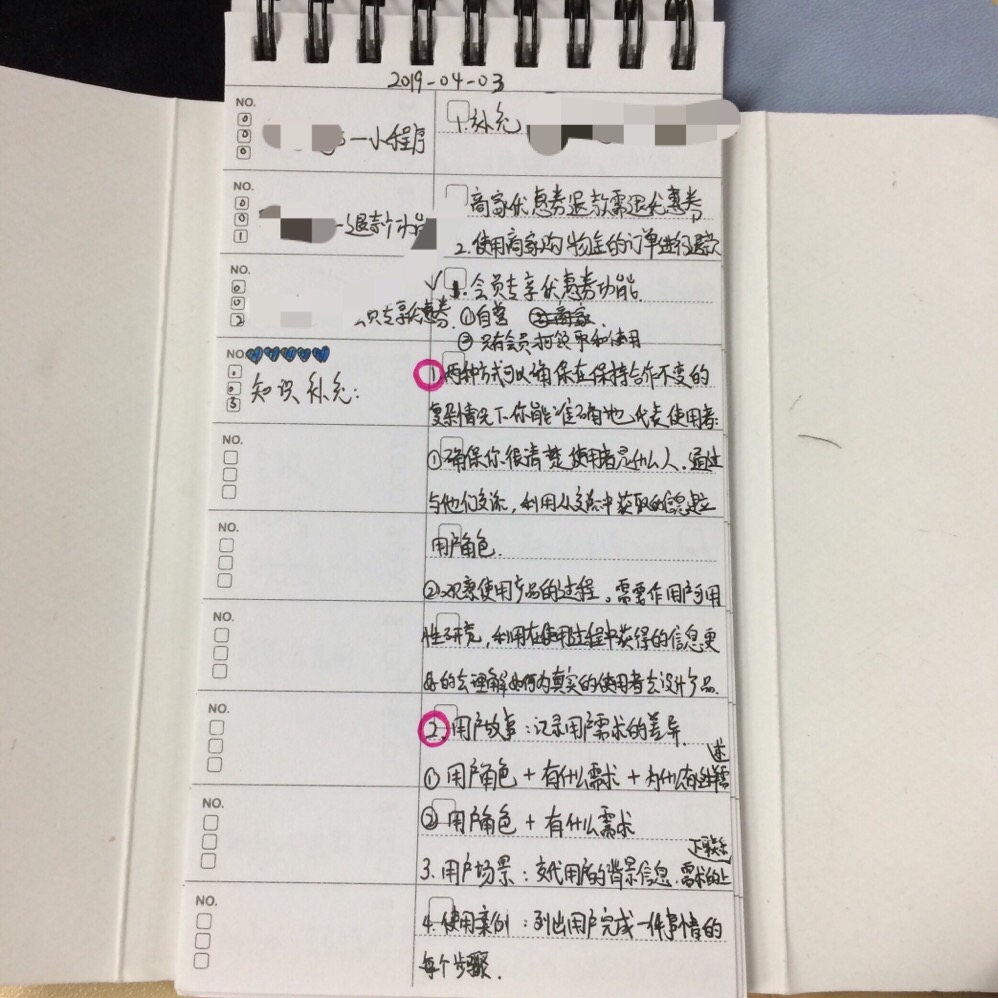 2019-04-03
NO.
0
0
0
一小程序
1.补充
NO.
0
0
1
-退款功能
商家优惠券退款需退优惠券
2.使用商家购物金的订单进行退款
NO.
0
0
2
员专享优惠券
√ 1.会员专享优惠券功能.
①自营 ②商家.
②只有会员可领取和使用
NO.
1
0
3
知识补充:
1.两种方式可以确保在保持合作不变的
复杂情况下你能准确地代表使用者:
NO.
①确保你很清楚使用者是什么人.通过
与他们交流,利用从交流中获取的信息建立
NO.
用户角色.
②观察使用产品的过程。需要作用户可用
NO.
性研究,利用在使用过程中获得的信息更
好的去理解如何为真实的使用者去设计产品.
NO.
2.用户故事:记录用户需求的差异.
①用户角色+有什么需求+为什么有这种需求
NO.
②用户角色+有什么需求
3.用户场景:交代用户的背景信息.需求的上下联系
NO.
4.使用案例:列出用户完成一件事情的
每个步骤.